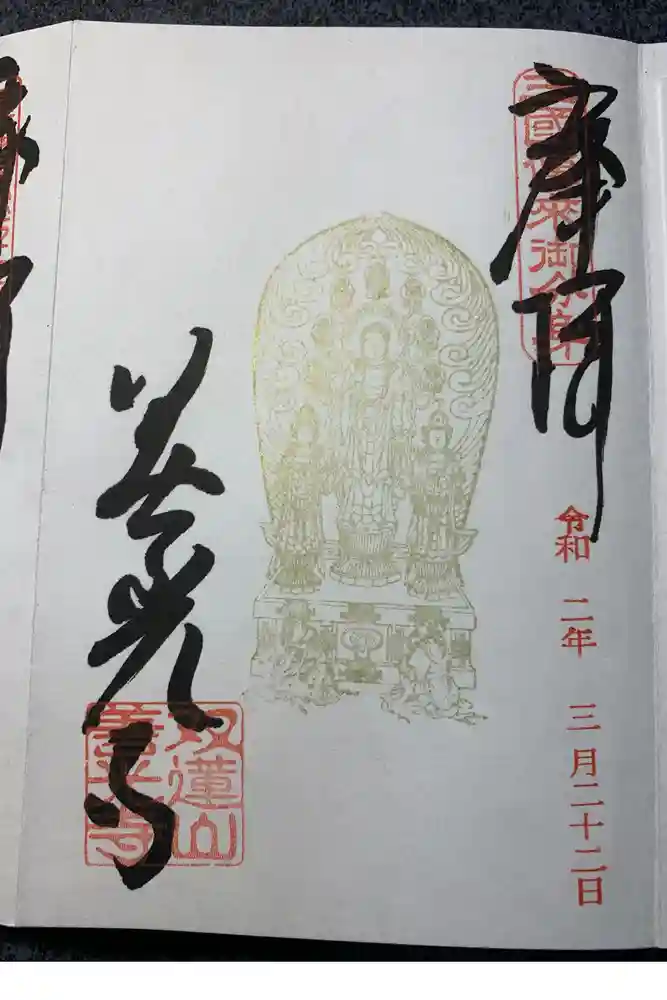 三國
来御分身
令和 二年 三月二十二日
善光寺
双蓮山
善光寺